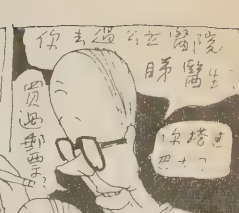 你去過公立醫院
睇醫生?
買西郵票?
你搭過
巴士?